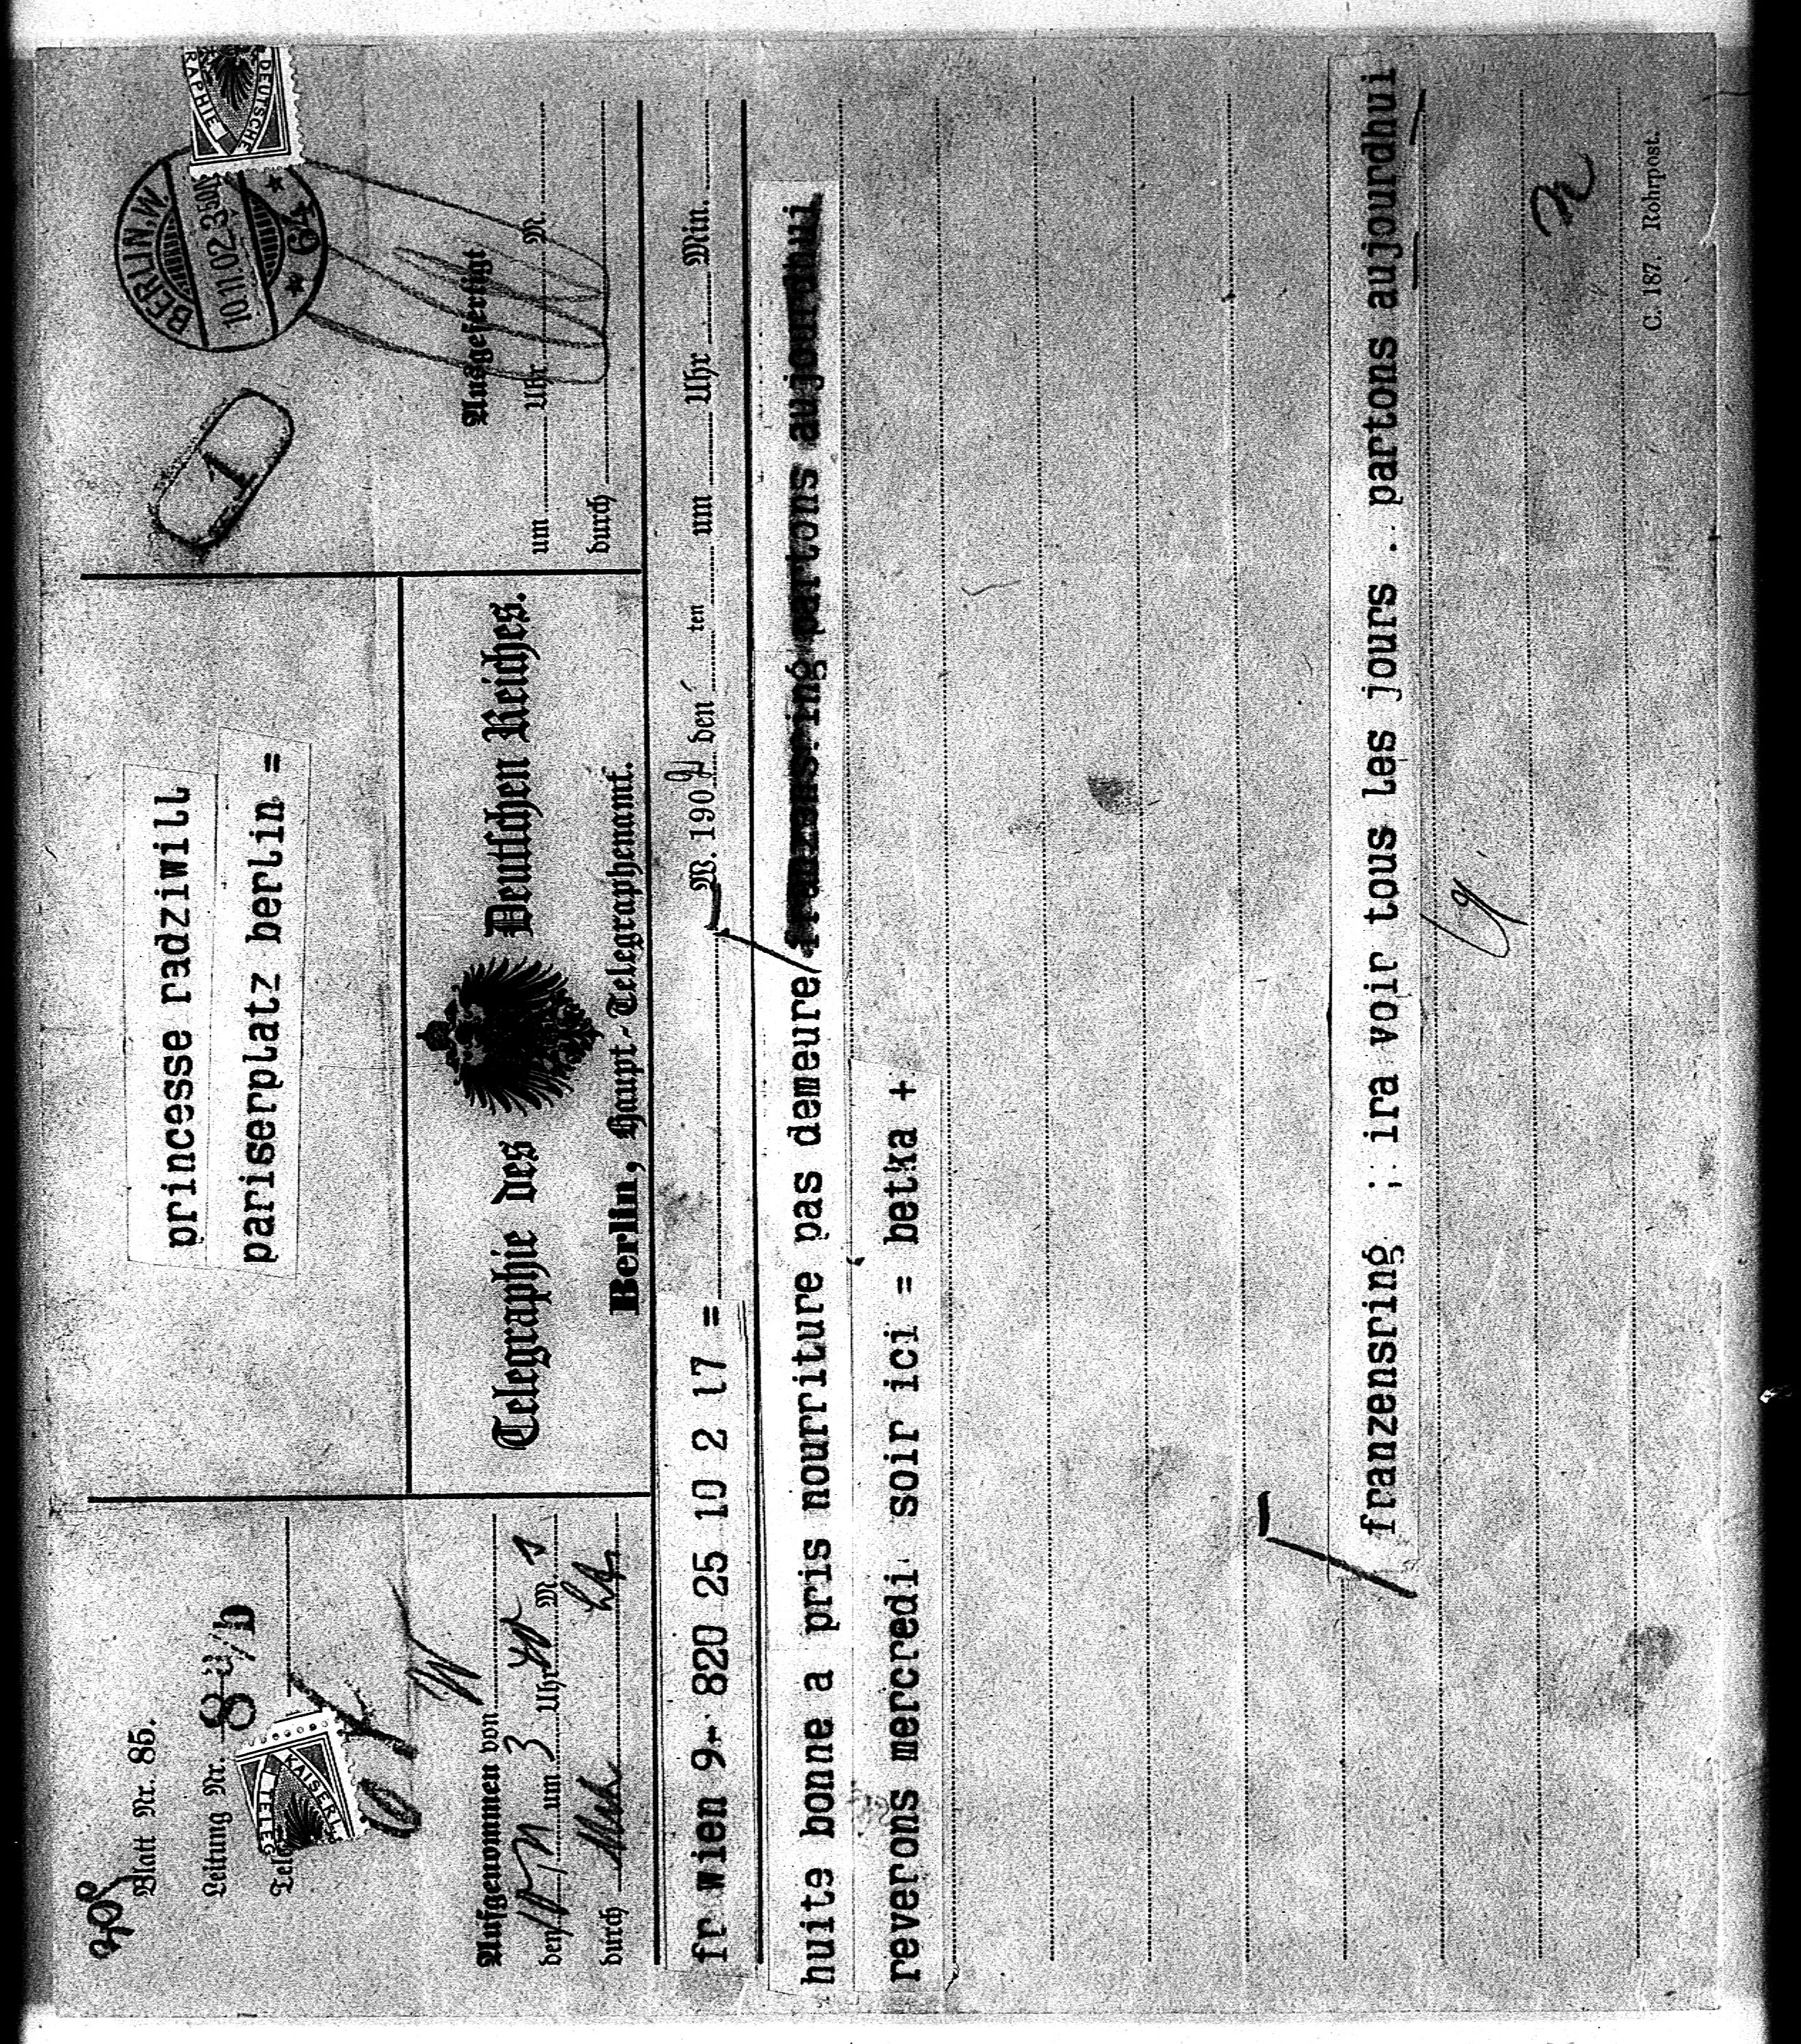 308
Blatt Nr. 85.
Leitung Nr. 8
princesse radziwill
pariserplatz berlin =
1
BERLIN.W.
10.11.02.3-50N
* 64 *
DEUTSCHE
RAPHIE
KAISERL
TELEG
Aufgenommen von
den um 3 Uhr M.
durch
Telegraphie des Deutschen Reiches.
Berlin, Haupt-Telegraphenamt.
Ausgefertigt
um Uhr M.
durch
fr wien 9- 820 25 10 2 17 =
M. 1902 den ten um Uhr Min.
huite bonne a pris nourriture pas demeure franzensring partons aujourdhui
reverons mercredi soir ici = betka +
franzensring ; ira voir tous les jours . partons aujourdhui
C. 187. Rohrpost.